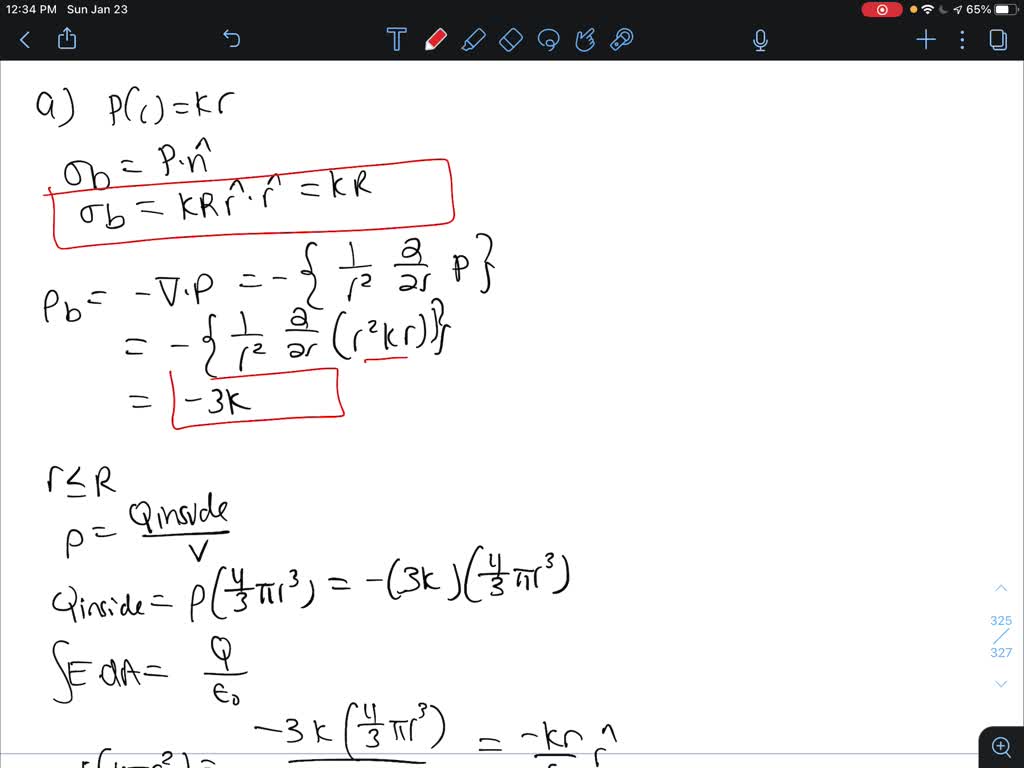 12:34 PM Sun Jan 23 65%
a) P(r) = kr
σb = P·n̂
σb = kR r̂·r̂ = kR
ρb = -∇·P = -{ 1/r² ∂/∂r P}
= -{ 1/r² ∂/∂r (r²kr)}
= -3k
r ≤ R
ρ = Qinside/V
Qinside = ρ(4/3 πr³) = -(3k)(4/3 πr³)
∫E dA = Q/ε₀
-3k(4/3 πr³) = -kr r̂
325
327